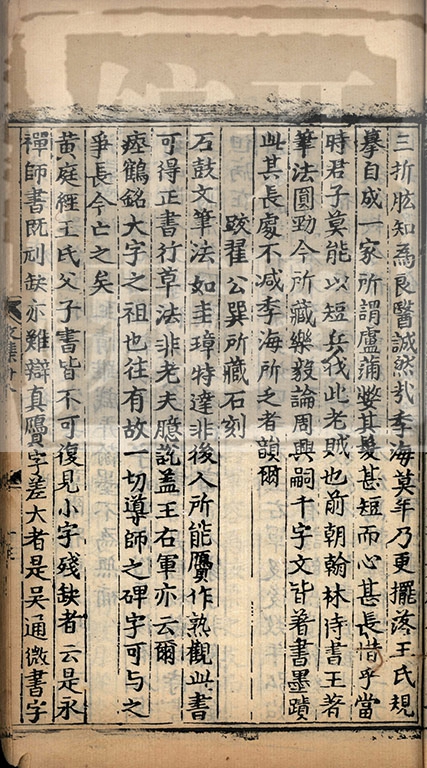 三折肱知為良醫誠然哉季海莫年乃更擺落王氏規
摹自成一家所謂盧蒲嫳其髮甚短而心甚長惜乎當
時君子莫能以短兵伐此老賊也前朝翰林侍書王著
筆法圓勁今所藏樂毅論周興嗣千字文皆著書墨蹟
此其長處不减季海所乏者韻爾
跋翟公巽所藏石刻
石鼓文筆法如圭璋特達非後人所能贗作熟觀此書
可得正書行草法非老夫臆說盖王右軍亦云爾
瘞鶴銘大字之祖也往有故一切導師之碑字可与之
爭長今亡之矣
黄庭經王氏父子書皆不可復見小字殘缺者云是永
禪師書既刓缺亦難辯真贗字差大者是吴通微書字